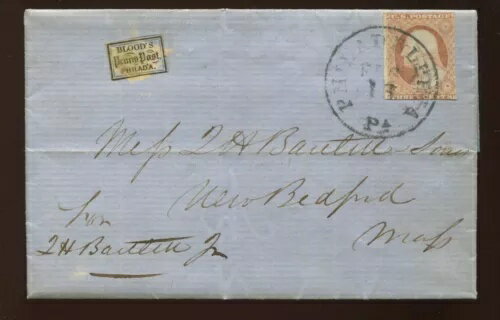 BLOOD'S
Penny Post
PHILAD'A.
U.S. POSTAGE
THREE CENTS
PHILADELPHIA
17
Pa
Mess J H Bartlett & Sons
New Bedford
Mass
For
J H Bartlett Jr